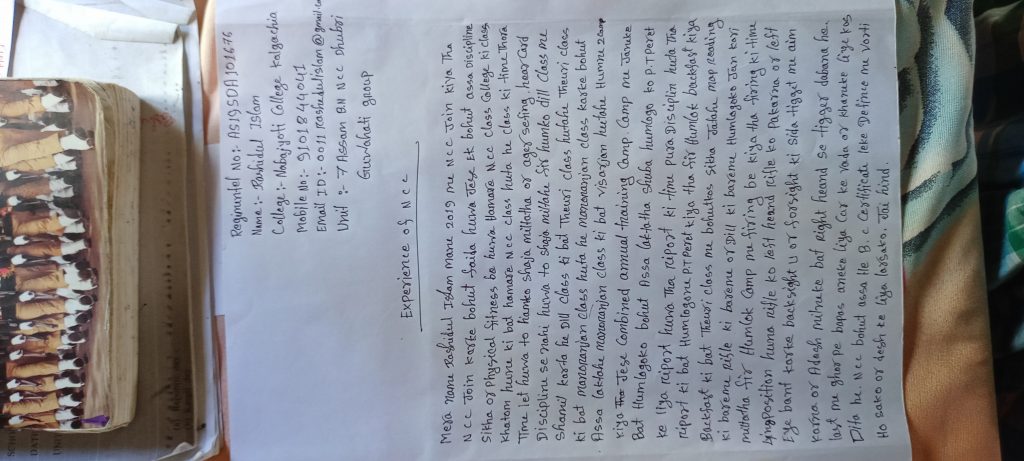 Regimentel No:- AS19SDA
Name:- Rashidul Islam
College:- Nabajyoti College Kalgachia
Mobille No:- 9101844041
Email ID:- 0011rashedulislam@gmail.co
Unit :- 7 Assam BN NCC Dhubri
Guwahati group
Experience of NCC
Mera name Rashidul Islam mane 2019 me NCC Join kiya Tha
NCC Join karke bohut faida huwa Jese Ek bohut assa Discipline
Sitha or Physical fitness be huwa Hamara N.cc class College ki class
Khatam hune ki bat hamare N.cc class huta he class ki time Thora
Time let huwa to Hamko shaja miltatha or ager sefing, hear card
Discipline se nahi huwa to shaja miltahe Sir humko dill Class me
Shamil karta he Dill class ki bat Theuri class hutahe Theuri class
ki bat manoranjan class huta he manoranjan class karke bohut
Assa laktahe manoranjan class ki bat visarjan hutahe Humne 2 camp
kiya Jese Combined annual training Camp Camp me Janeke
Bat Humlogoko bohut Assa laktha Shuba humlogo ko P.T Peret
ke liya riport huwa Tha riport ki time pura Disciplin huta Tha
riport ki bat Humlogone P.T Peret kiya tha fir Humlok backfast kiya
Backfast ki bat Theuri class me bohuthos sitha Jatahe map reading
ki bareme Rifle ki bareme or Dill ki bareme Humlogoko Jan kari
miltatha fir Humlok Camp me firing be kiya tha firing ki time
Lyingposition huna rifle ko left heand rifle ko Pakarna or left
Eye bant karke backsight U or forsight ki sida tigget me aim
karna or Adesh milneke bat Right heand se tigger dabana he.
last me ghor pe bapas aneke liya Car ke vada or khaneke liye kos
D/ta he Ncc bohut assa He B.c Certificate leke Defince me varti
Ho sake or desh ke liya larsako. Jai hind.